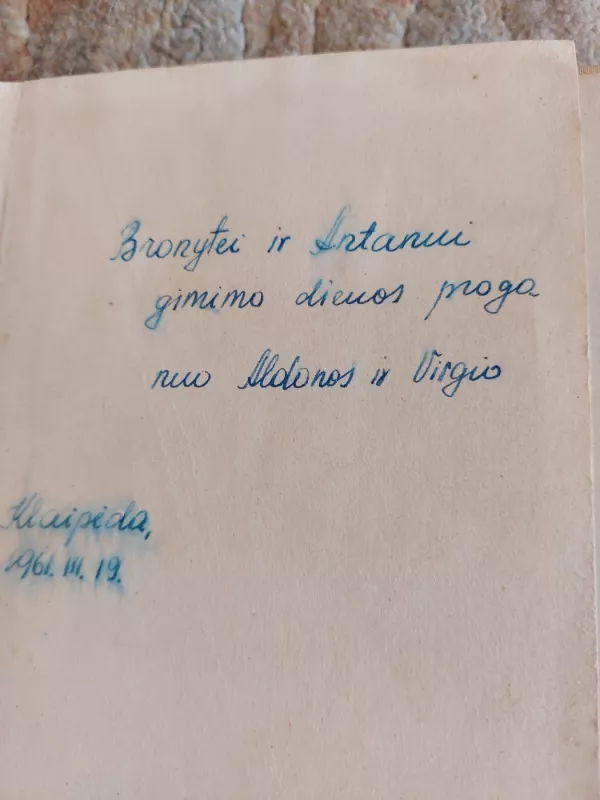 Bronytei ir Antanui
gimimo dienos proga
nuo Aldonos ir Virgio
Klaipėda,
1961. III. 19.